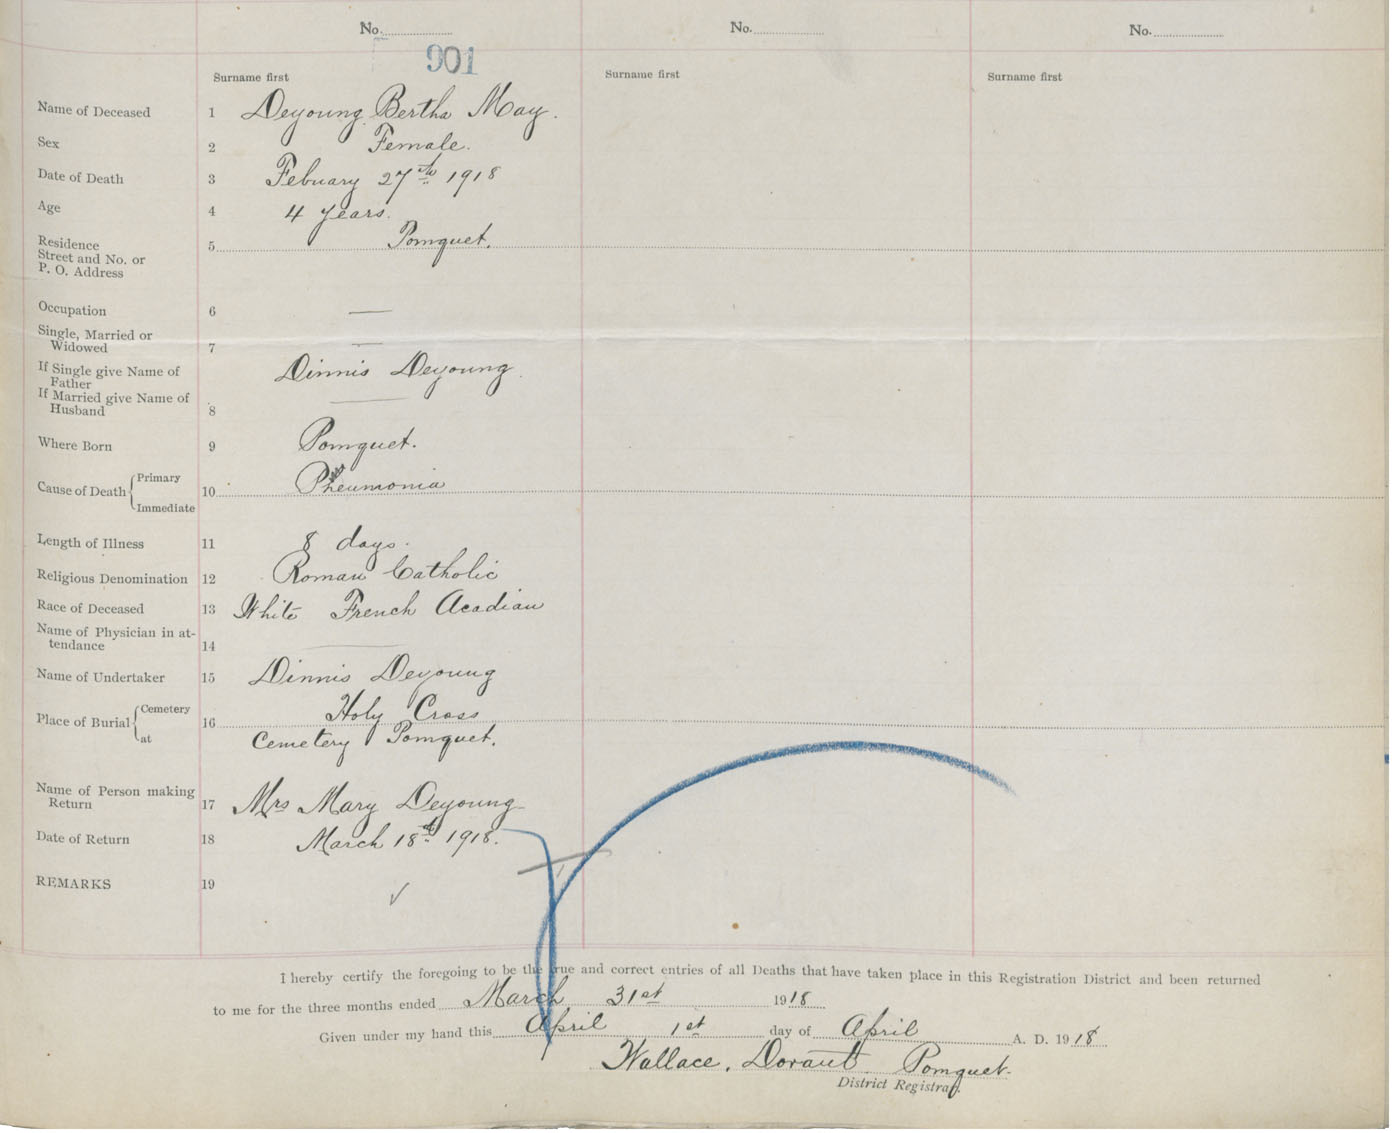 No. No. No.
901
Surname first Surname first Surname first
Name of Deceased 1 Deyoung Bertha May.
Sex 2 Female.
Date of Death 3 Febuary 27th 1918
Age 4 4 years.
Residence 5 Pomquet.
Street and No. or
P. O. Address
Occupation 6 —
Single, Married or
Widowed 7 —
If Single give Name of Dinnis Deyoung
Father
If Married give Name of
Husband 8 —
Where Born 9 Pomquet.
Primary
Cause of Death 10 Pneumonia
Immediate
Length of Illness 11 8 days.
Religious Denomination 12 Roman Catholic
Race of Deceased 13 White French Acadian
Name of Physician in at-
tendance 14 —
Name of Undertaker 15 Dinnis Deyoung
Cemetery Holy Cross
Place of Burial 16
at Cemetery Pomquet.
Name of Person making
Return 17 Mrs Mary Deyoung
Date of Return 18 March 18th 1918.
REMARKS 19 ✓
I hereby certify the foregoing to be the true and correct entries of all Deaths that have taken place in this Registration District and been returned
to me for the three months ended March 31st 1918
Given under my hand this April 1st day of April A. D. 1918
Wallace. Dorant Pomquet.
District Registrar.